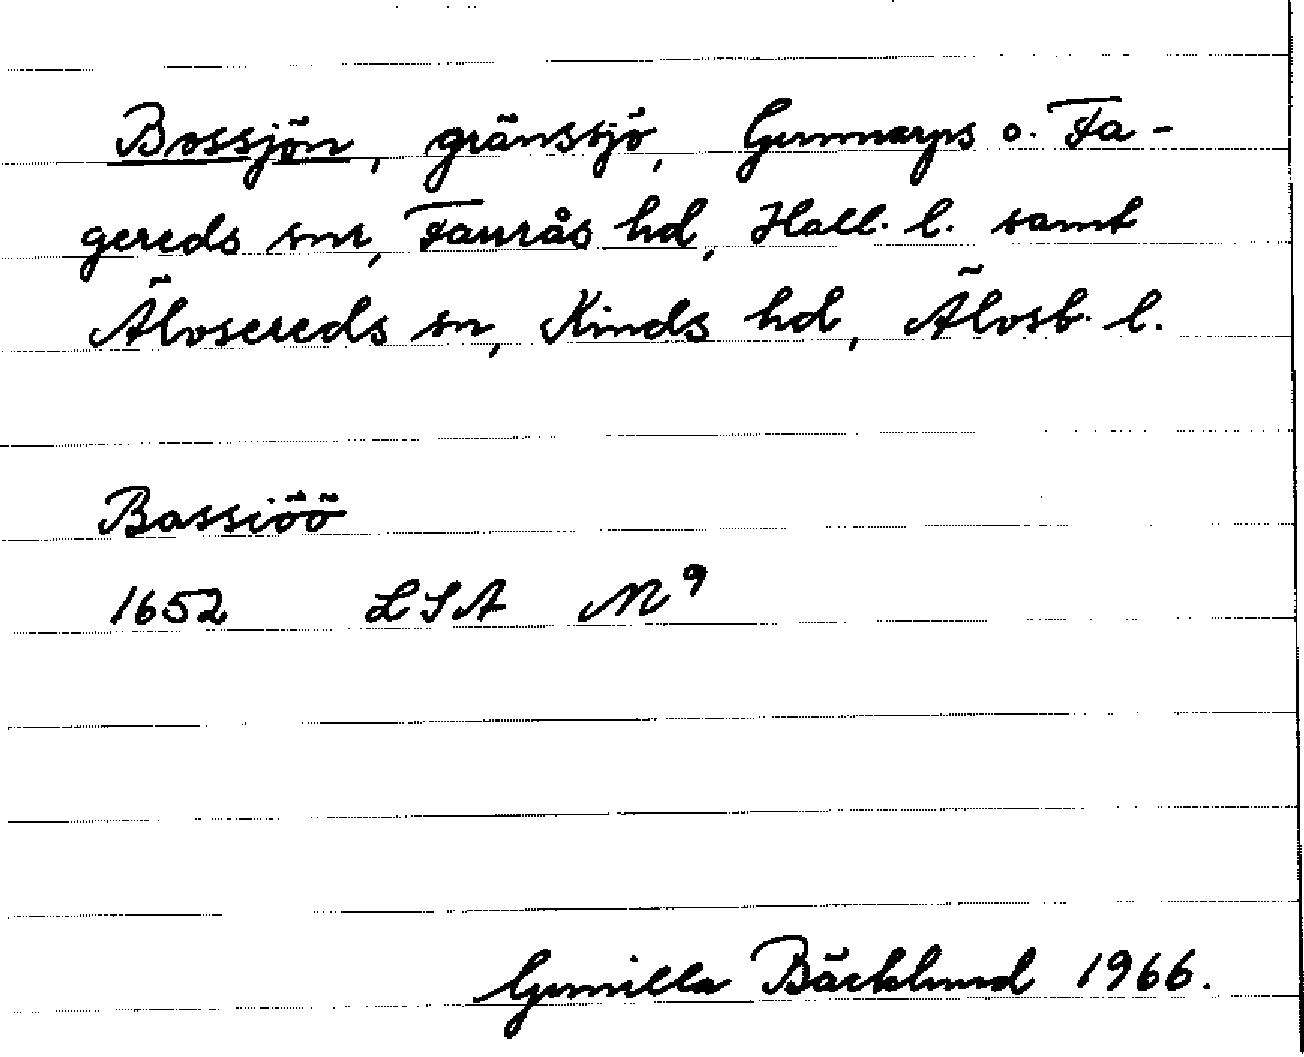 Bossjön, gränssjö, Gunnarps o. Fa-
gereds snr, Faurås hd, Hall. l. samt
Älvsereds sn, Kinds hd, Älvsb. l.
Bassiöö
1652 LSA N 9
Gunilla Bäcklund 1966.